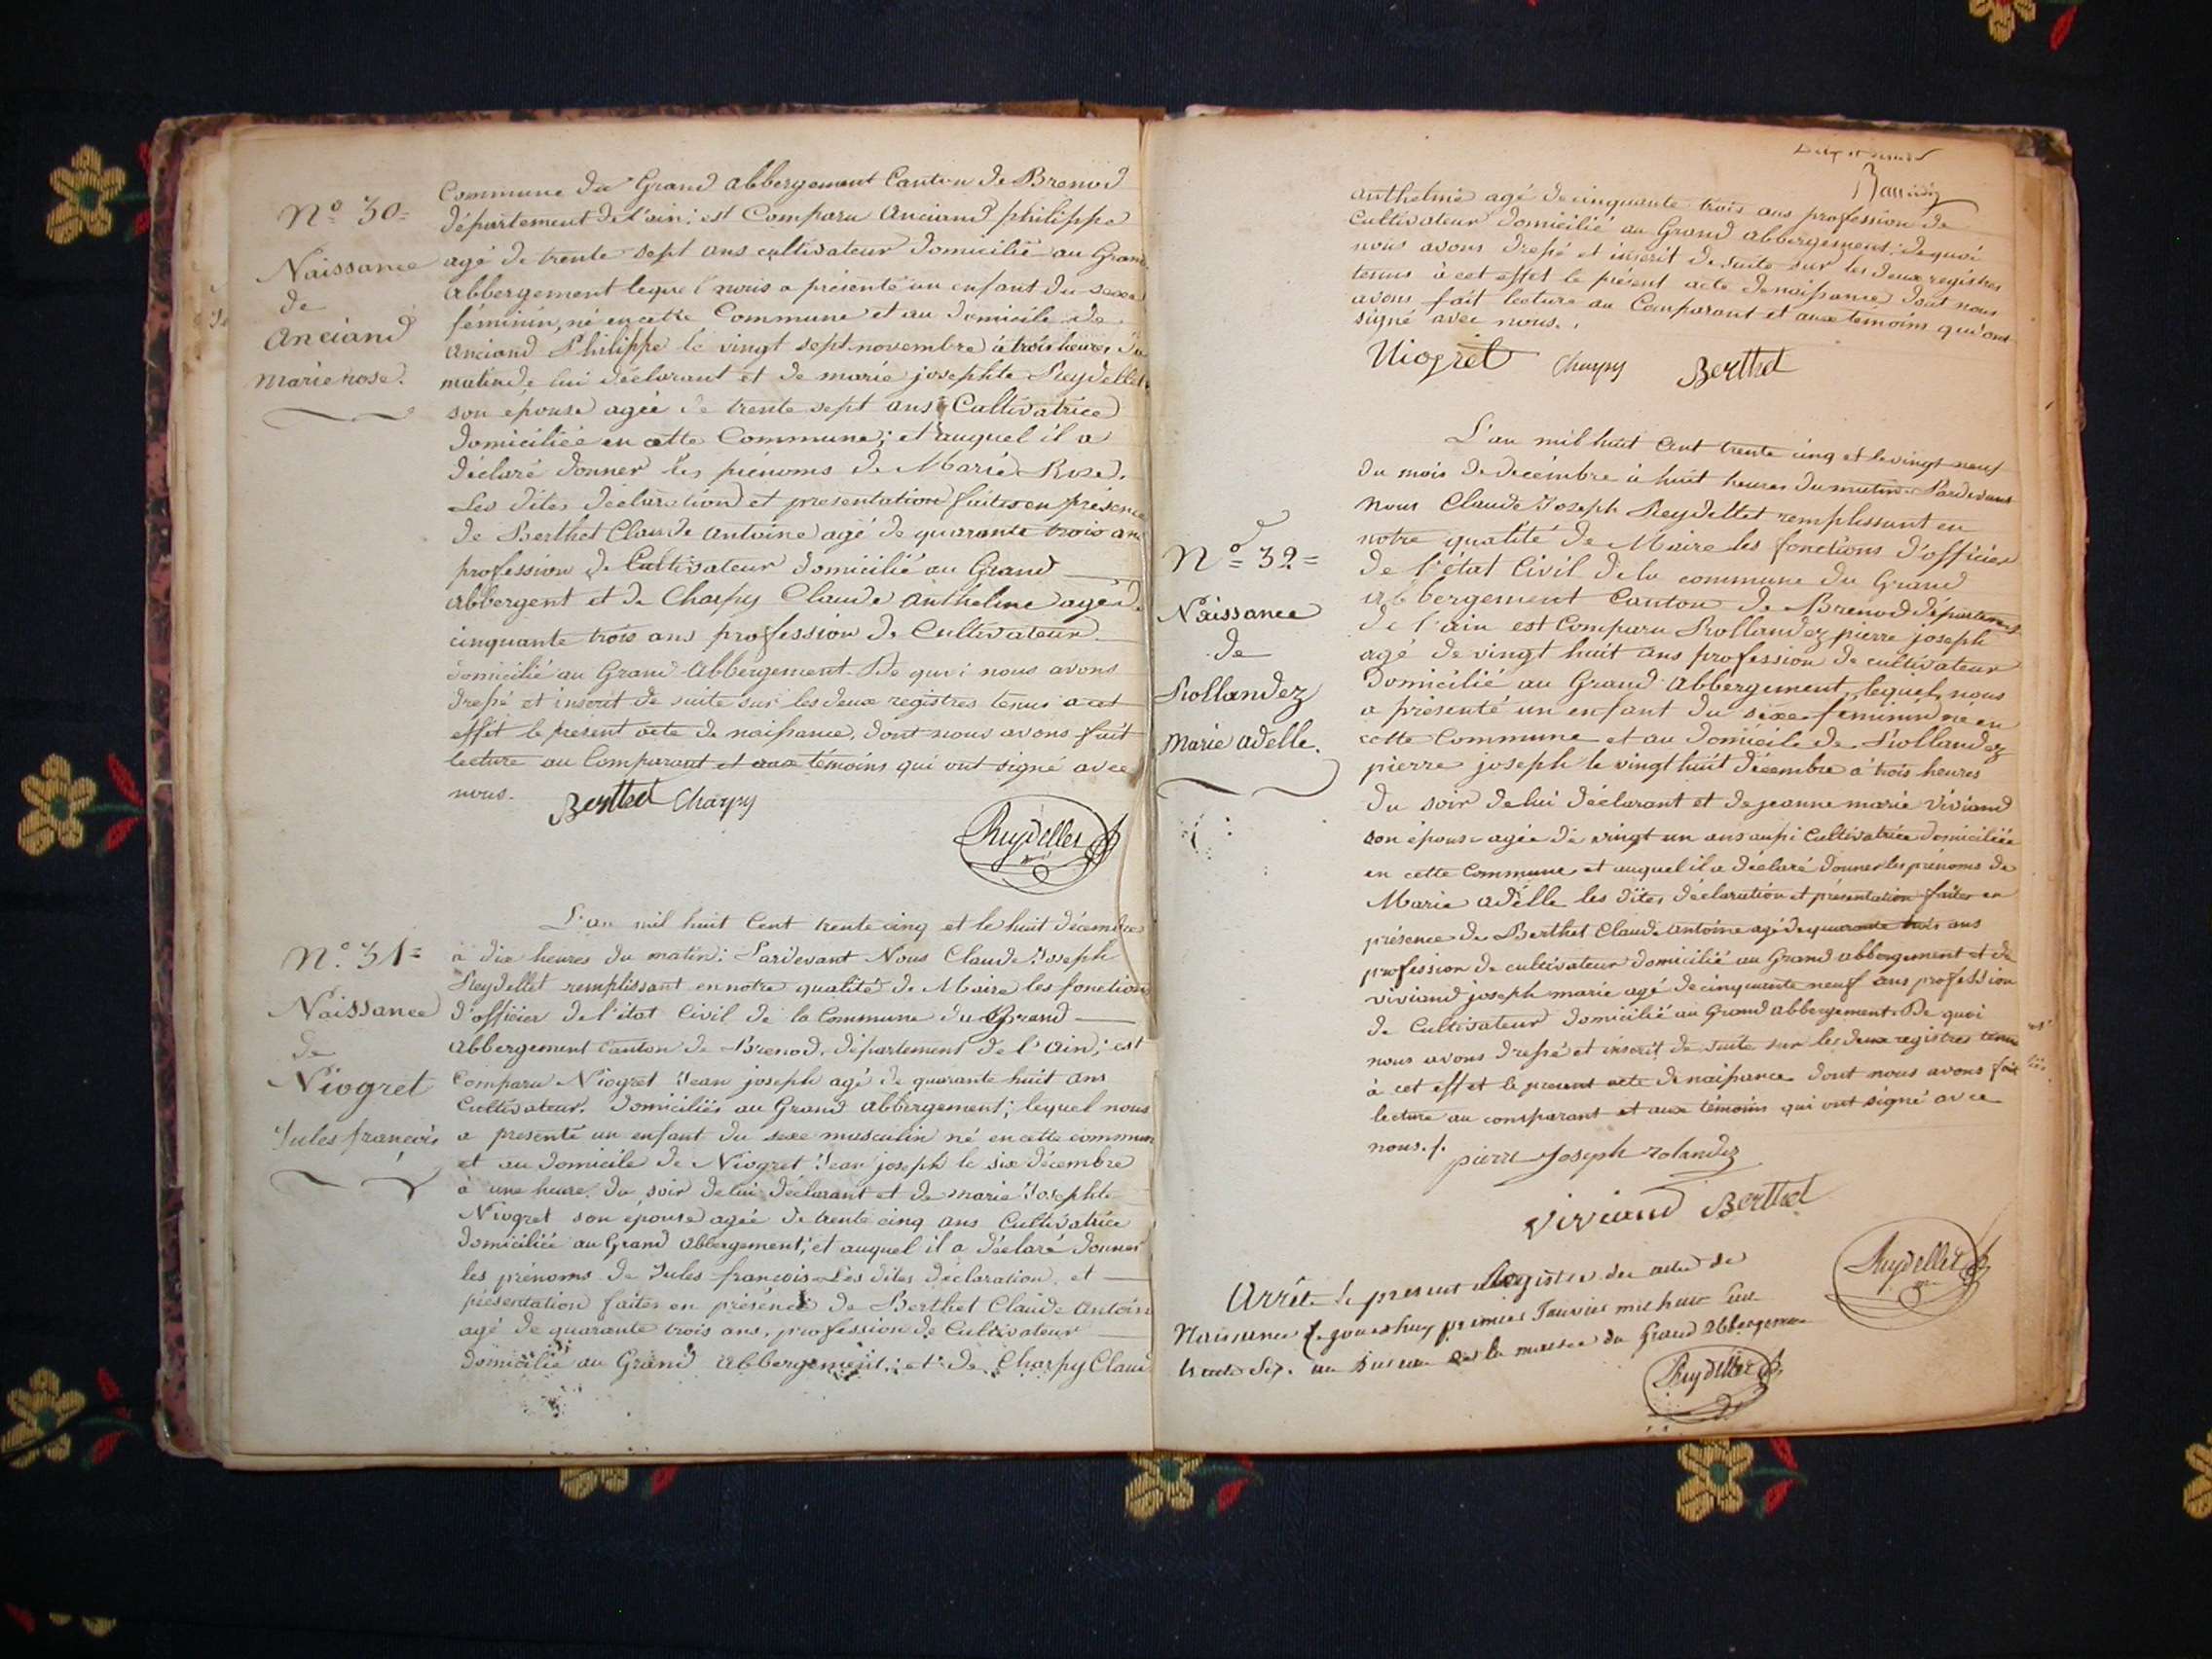 N° 30=
Naissance
de
Anciand
marie rose.
Commune du Grand abbergement Canton de Brenod
département de l'ain; est Comparu Anciand philippe
agé de trente sept ans cultivateur domicilié au Grand
abbergement lequel nous a présenté un enfant du sexe
féminin, né en cette Commune et au domicile de
Anciand Philippe le vingt sept novembre à trois heures du
matin de lui déclarant et de marie josephte Reydellet
son épouse agée de trente sept ans Cultivatrice
domiciliée en cette Commune; et auquel il a
déclaré donner les prénoms de Marie Rose.
Les dites déclaration et presentation faites en présence
de Berthet Claude Antoine agé de quarante trois ans
profession de Cultivateur domicilié au Grand
abbergent et de Charpy Claude Anthelme agé de
cinquante trois ans profession de Cultivateur
domicilié au Grand Abbergement. De quoi nous avons
dressé et inscrit de suite sur les deux registres tenus a cet
effet le présent acte de naissance, dont nous avons fait
lecture au Comparant et aux témoins qui ont signé avec
nous.
Berthet Charpy
Reydellet
N° 31=
Naissance
de
Niogret
Jules françois
L'an mil huit Cent trente cinq et le huit décembre
à dix heures du matin; Pardevant Nous Claude Joseph
Reydellet remplissant en notre qualité de Maire les fonctions
d'officier de l'état Civil de la Commune du Grand
abbergement Canton de Brenod, département de l'Ain; est
Comparu Niogret Jean joseph agé de quarante huit ans
Cultivateur. domiciliés au Grand abbergement; lequel nous
a presenté un enfant du sexe masculin né en cette commun
et au domicile de Niogret Jean joseph le six décembre
à une heure du soir de lui déclarant et de marie Josephte
Niogret son épouse agée de trente cinq ans Cultivatrice
domiciliée au Grand abbergement; et auquel il a déclaré donner
les prénoms de Jules françois Les dites déclaration et
présentation faites en présence de Berthet Claude Antoin
agé de quarante trois ans, profession de Cultivateur
domicilié au Grand abbergement; et de Charpy Claud
anthelme agé de cinquante trois ans profession de
Cultivateur domicilié au Grand abbergement; de quoi
nous avons dressé et inscrit de suite sur les deux registres
tenus à cet effet le présent acte de naissance dont nous
avons fait lecture au Comparant et aux temoins qui ont
signé avec nous.
Niogret Charpy Berthet
N° 32=
Naissance
de
Rollandez
Marie adelle.
L'an mil huit Cent trente cinq et le vingt neuf
du mois de decémbre à huit heures du matin Pardevant
Nous Claude Joseph Reydellet remplissant en
notre qualité de Maire les fonctions d'officier
de l'état Civil de la commune du Grand
abbergement Canton de Brenod département
de l'ain est Comparu Rollandez pierre joseph
agé de vingt huit ans profession de cultivateur
domicilié au Grand Abbergement, lequel nous
a présenté un enfant du sexe feminin né en
cette Commune et au domicile de Rollandez
pierre joseph le vingt huit décembre à trois heures
du soir de lui déclarant et de jeanne marie Viviand
son épouse agée de vingt un ans aussi Cultivatrice domiciliée
en cette Commune et auquel il a déclaré donner les prénoms de
Marie adélle les dites déclaration et présentation faites en
présence de Berthet Claude Antoine agé de quarante trois ans
profession de cultivateur domicilié au Grand abbergement et de
viviand joseph marie agé de cinquante neuf ans profession
de Cultivateur domicilié au Grand abbergement. De quoi
nous avons dressé et inscrit de suite sur les deux registres tenus
à cet effet le present acte de naissance dont nous avons fait
lecture au comparant et aux témoins qui ont signé avec
nous./.
pierre Joseph rolandez
Viviand Berthet
Reydellet
Arrêté le present Registre des actes de
Naissance le jourdhuy premier Janvier mil huit Cent
trente six. au Bureau de la mairie du Grand Abbergement
Reydellet